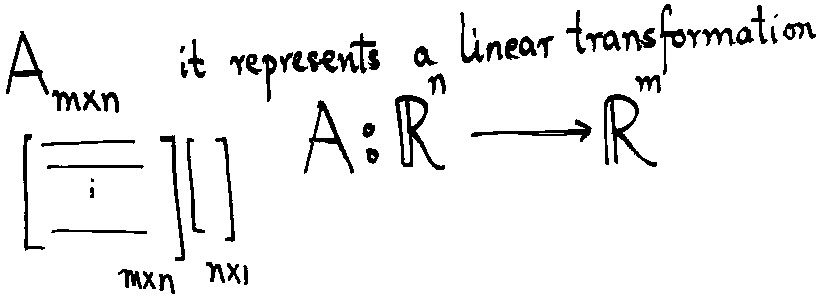 A m×n it represents a linear transformation
A : ℝⁿ ⟶ ℝᵐ
[ i ] m×n [ ] n×1